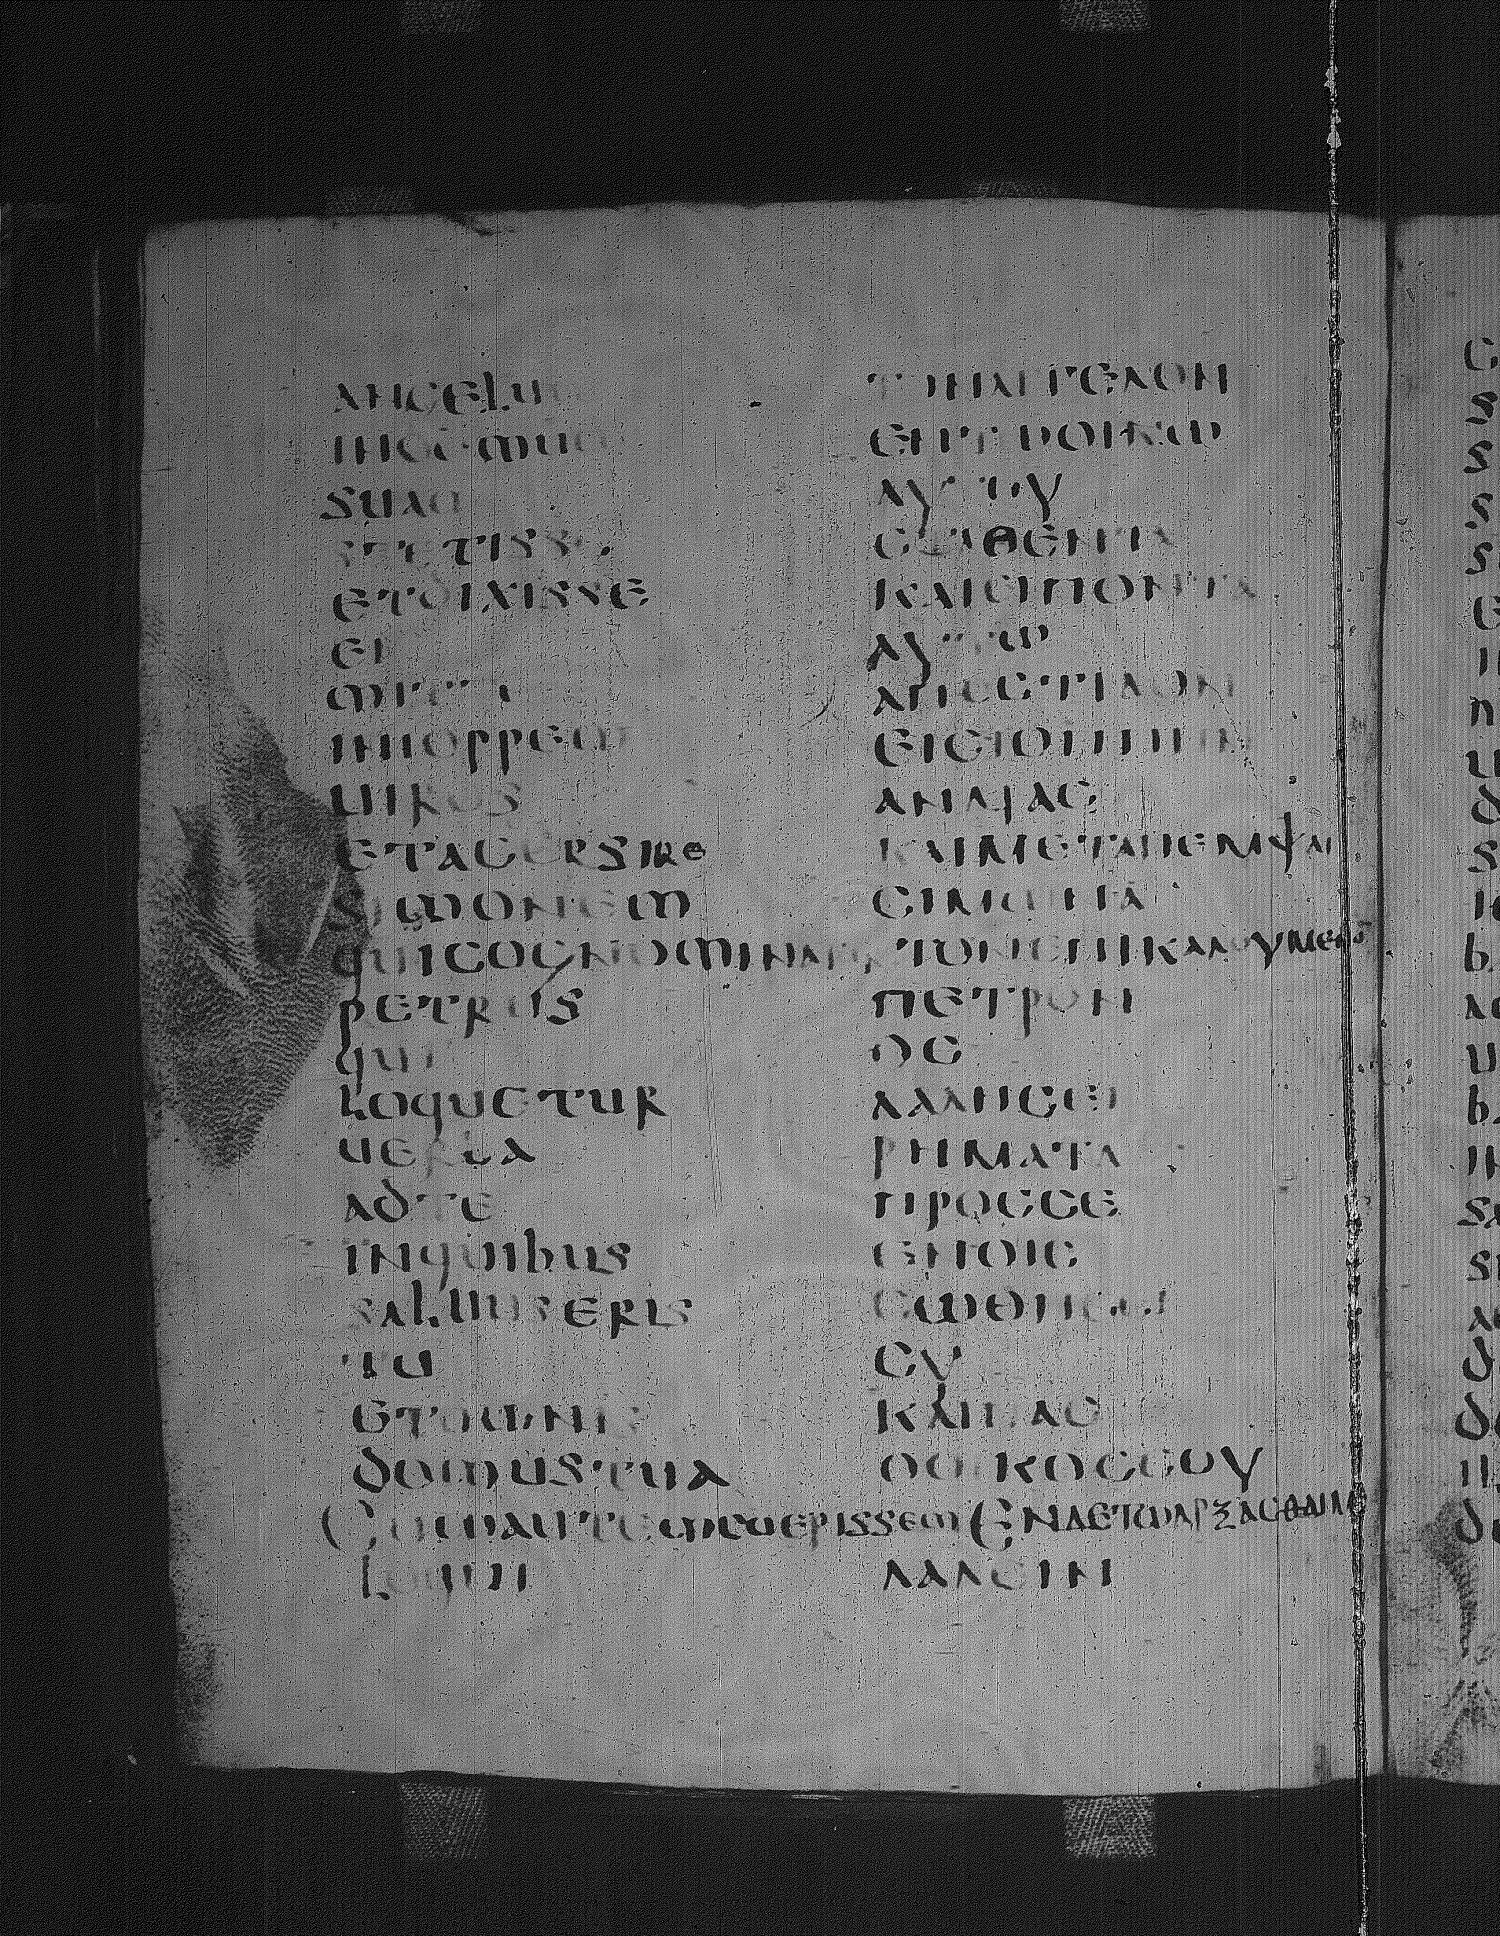 ANGELUM
INDOMUM
SUAM
STETISSE
ETDIXISSE
EI
MITTE
INIOPPEM
UIROS
ETACCERSIRE
SIMONEM
QUICOGNOMINATUR
PETRUS
QUI
LOQUETUR
UERBA
ADTE
INQUIBUS
SALUUSERIS
TU
ETOMNIS
DOMUSTUA
CUMAUTEM
LOQUI
ΤΟΝΑΓΓΕΛΟΝ
ΕΝΤΩΟΙΚΩ
ΑΥΤΟΥ
ϹΤΑΘΕΝΤΑ
ΚΑΙΕΙΠΟΝΤΑ
ΑΥΤΩ
ΑΠΟϹΤΙΛΟΝ
ΕΙϹΙΟΠΠΗΝ
ΑΝΔΡΑϹ
ΚΑΙΜΕΤΑΠΕΜΨΑΙ
ϹΙΜΩΝΑ
ΤΟΝΕΠΙΚΑΛΟΥΜΕΝΟΝ
ΠΕΤΡΟΝ
ΟϹ
ΛΑΛΗϹΕΙ
ΡΗΜΑΤΑ
ΠΡΟϹϹΕ
ΕΝΟΙϹ
ϹΩΘΗϹΕΙ
ϹΥ
ΚΑΙΠΑϹ
ΟΟΙΚΟϹϹΟΥ
ΕΝΔΕΤΩΑΡΞΑϹΘΑΙΜΕ
ΛΑΛΕΙΝ